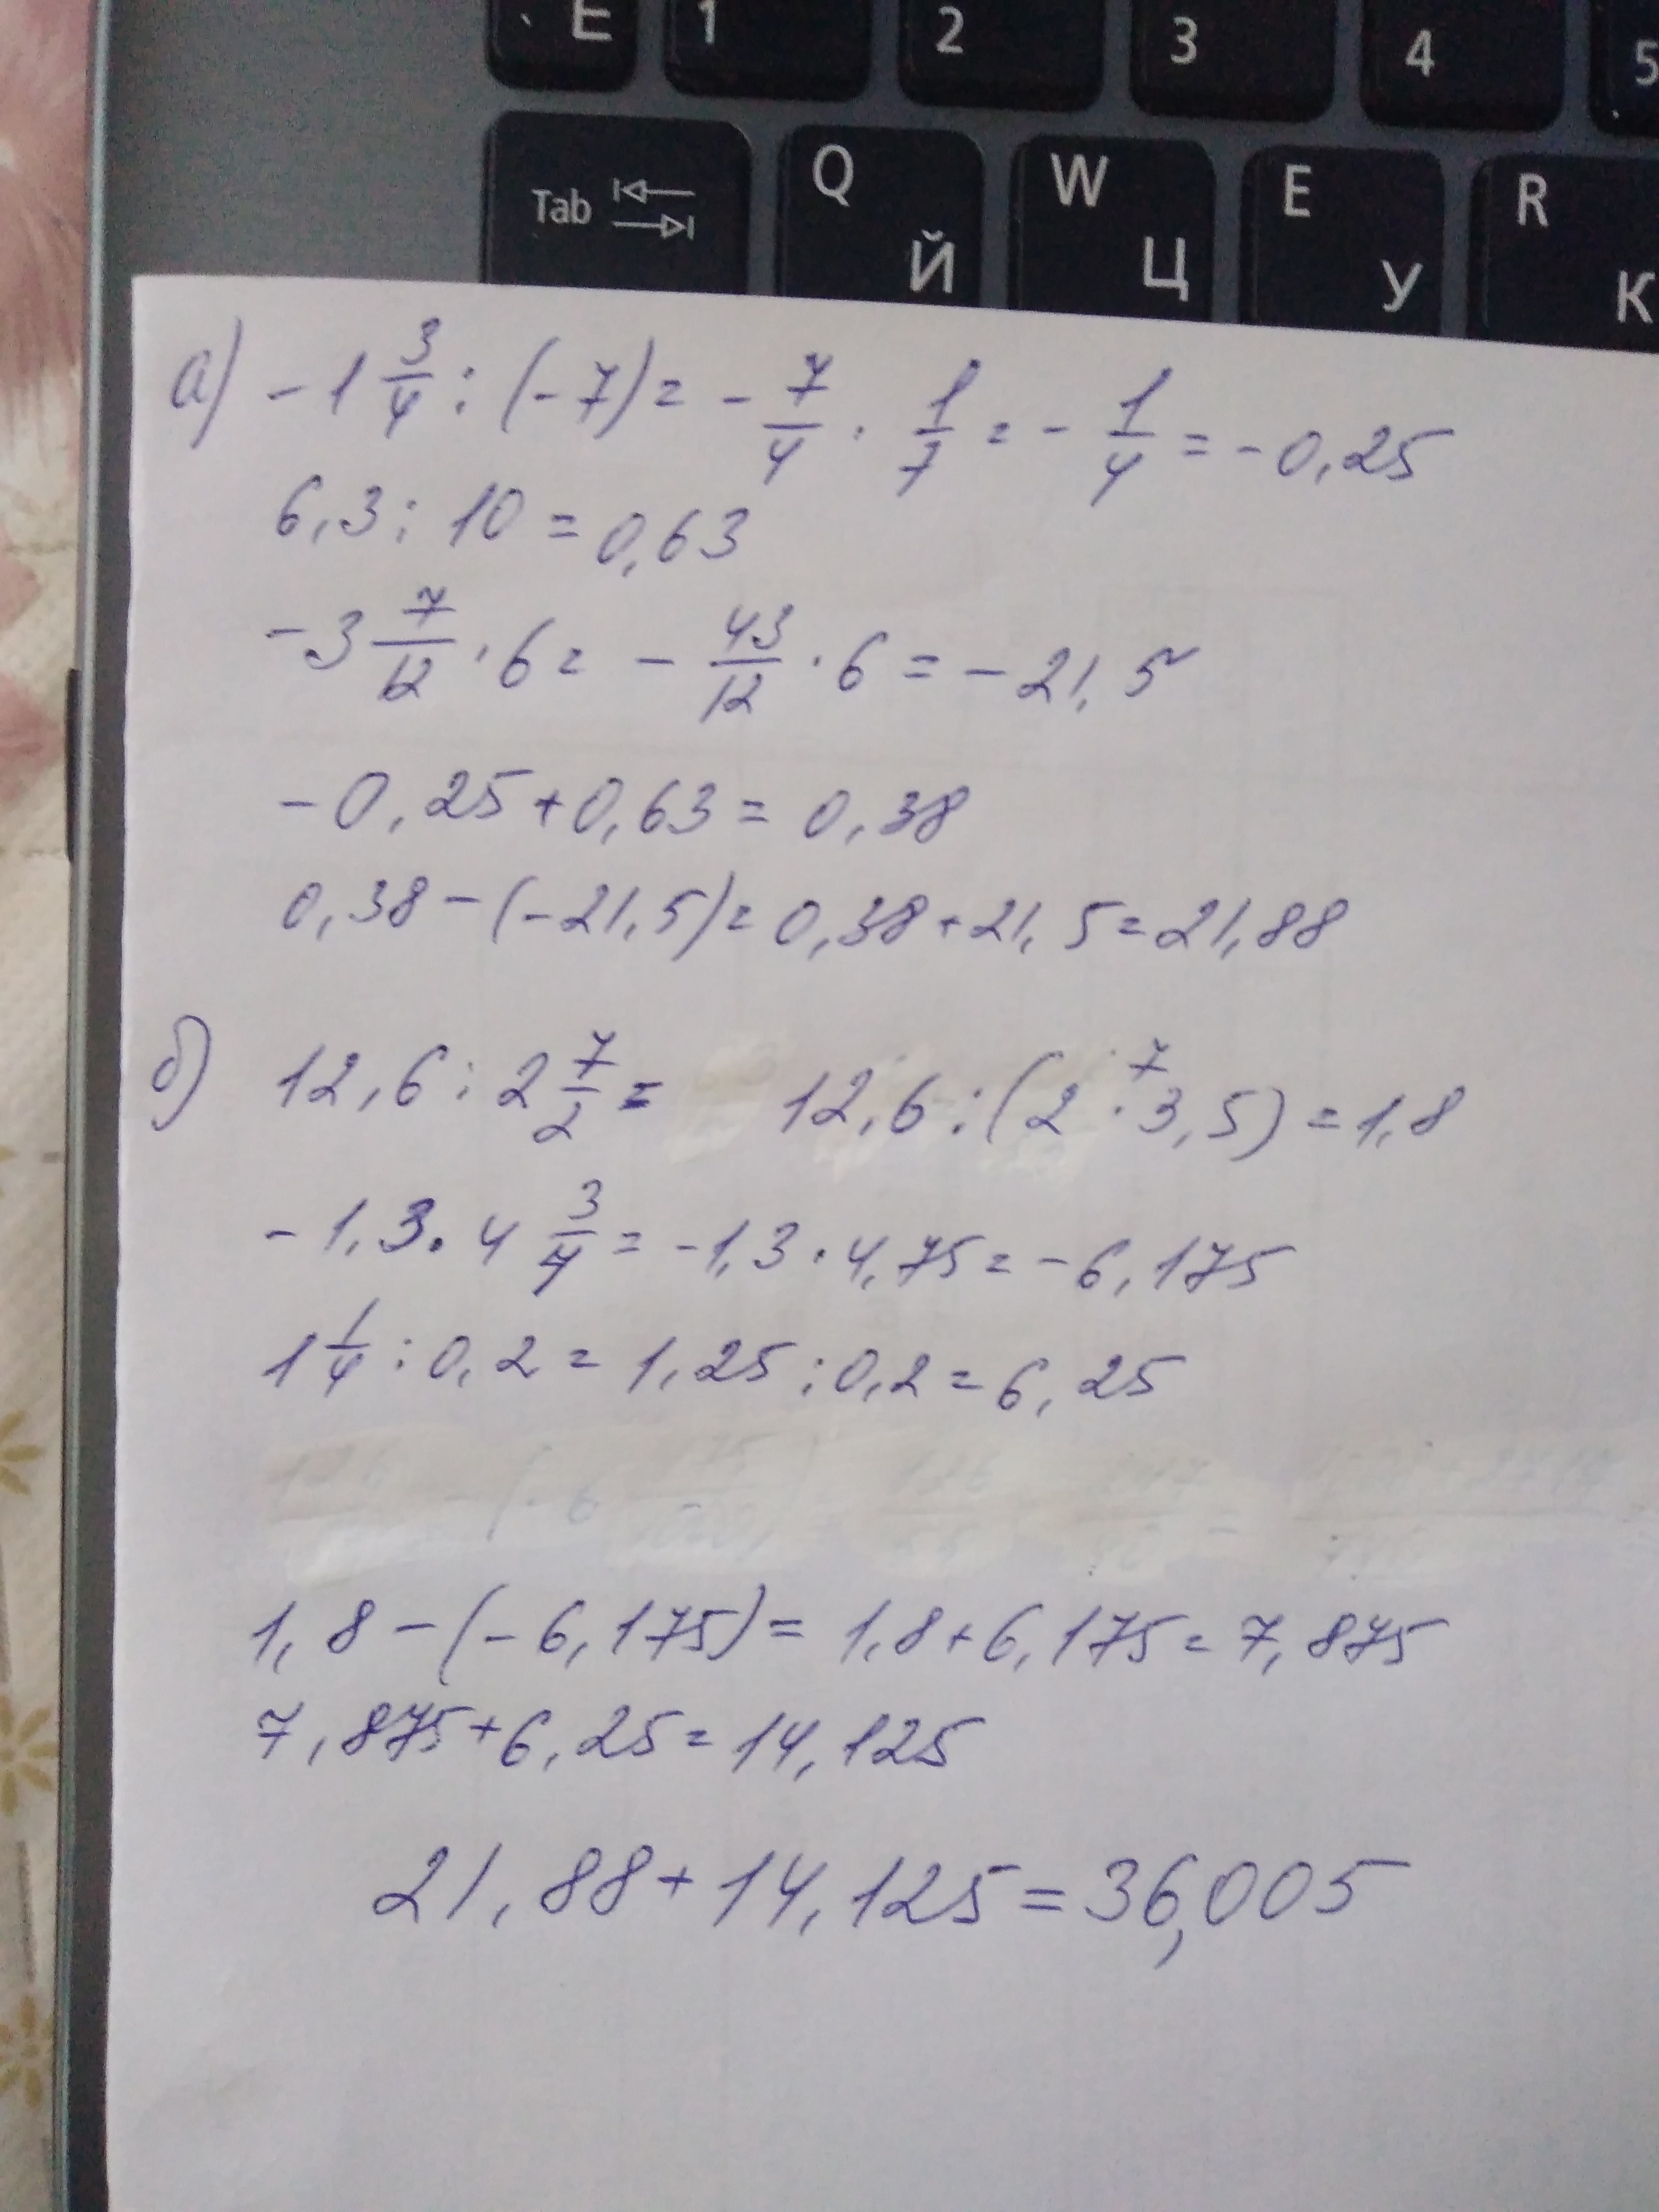 Ё 1 2 3 4 5
Tab Q Й W Ц E У R К
а) -1 3/4 : (-7) = - 7/4 · 1/7 = - 1/4 = -0,25
6,3 : 10 = 0,63
-3 7/12 · 6 = - 43/12 · 6 = -21,5
-0,25 + 0,63 = 0,38
0,38 - (-21,5) = 0,38 + 21,5 = 21,88
б) 12,6 : 2 7/2 = 12,6 : (2 · 3,5) = 1,8
7
-1,3 · 4 3/4 = -1,3 · 4,75 = -6,175
1 1/4 : 0,2 = 1,25 : 0,2 = 6,25
1,8 - (-6,175) = 1,8 + 6,175 = 7,875
7,875 + 6,25 = 14,125
21,88 + 14,125 = 36,005